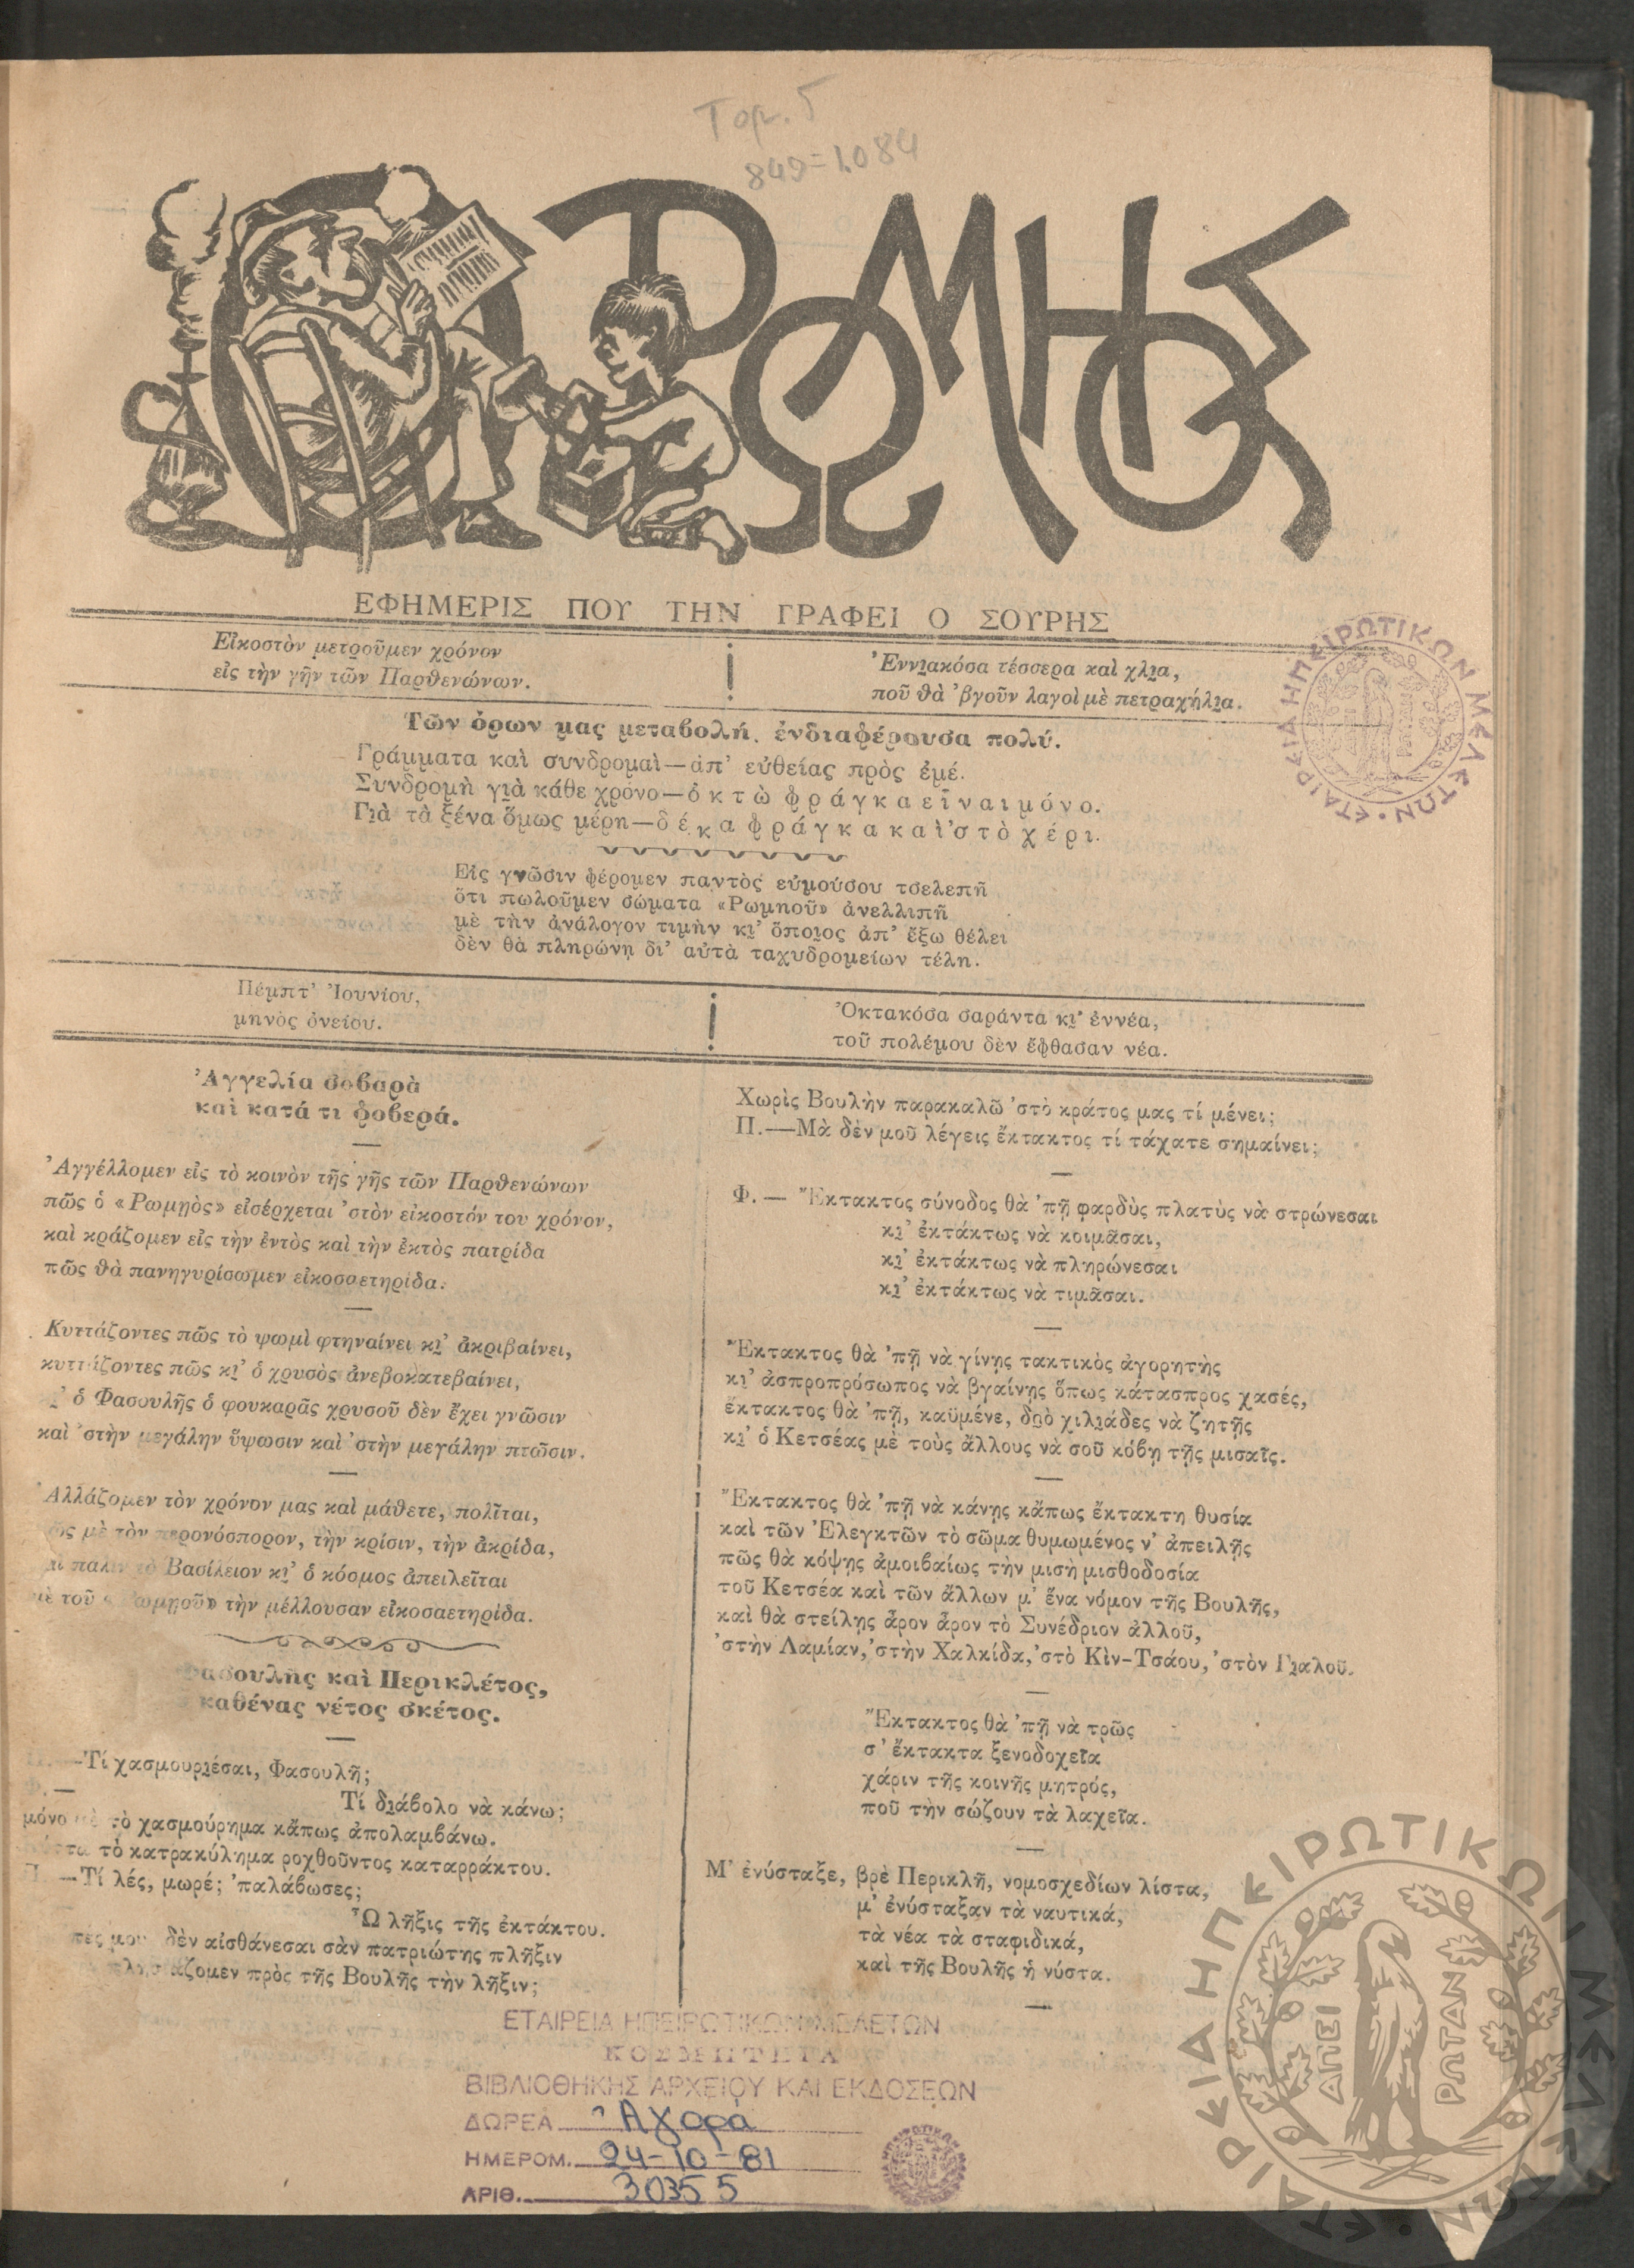 Τομ. 5
849=1084
Ο ΡΩΜΗΟΣ
ΕΦΗΜΕΡΙΣ ΠΟΥ ΤΗΝ ΓΡΑΦΕΙ Ο ΣΟΥΡΗΣ
Εἰκοστὸν μετροῦμεν χρόνον
εἰς τὴν γῆν τῶν Παρθενώνων.
Ἐννι̯ακόσα τέσσερα καὶ χίλι̯α,
ποῦ θὰ ’βγοῦν λαγοὶ μὲ πετραχήλι̯α.
Τῶν ὅρων μας μεταβολή, ἐνδιαφέρουσα πολύ.
Γράμματα καὶ συνδρομαὶ—ἀπ’ εὐθείας πρὸς ἐμέ.
Συνδρομὴ γι̯ὰ κάθε χρόνο—ὀκτὼ φράγκα εἶναι μόνο.
Γι̯ὰ τὰ ξένα ὅμως μέρη—δέκα φράγκα καὶ ’στὸ χέρι.
Εἰς γνῶσιν φέρομεν παντὸς εὐμούσου τσελεπῆ
ὅτι πωλοῦμεν σώματα «Ρωμηοῦ» ἀνελλιπῆ
μὲ τὴν ἀνάλογον τιμὴν κι̯’ ὅποι̯ος ἀπ’ ἔξω θέλει
δὲν θὰ πληρώνῃ δι’ αὐτὰ ταχυδρομείων τέλη.
Πέμπτ’ Ἰουνίου,
μηνὸς ὀνείου.
Ὀκτακόσα σαράντα κι̯’ ἐννέα,
τοῦ πολέμου δὲν ἔφθασαν νέα.
Ἀγγελία σοβαρὰ
καὶ κατά τι φοβερά.
Ἀγγέλλομεν εἰς τὸ κοινὸν τῆς γῆς τῶν Παρθενώνων
πῶς ὁ «Ρωμῃὸς» εἰσέρχεται ’στὸν εἰκοστόν του χρόνον,
καὶ κράζομεν εἰς τὴν ἐντὸς καὶ τὴν ἐκτὸς πατρίδα
πῶς θὰ πανηγυρίσωμεν εἰκοσαετηρίδα.
Κυττάζοντες πῶς τὸ ψωμὶ φτηναίνει κι̯’ ἀκριβαίνει,
κυττάζοντες πῶς κι̯’ ὁ χρυσὸς ἀνεβοκατεβαίνει,
ὁ Φασουλῆς ὁ φουκαρᾶς χρυσοῦ δὲν ἔχει γνῶσιν
καὶ ’στὴν μεγάλην ὕψωσιν καὶ ’στὴν μεγάλην πτῶσιν.
Ἀλλάζομεν τὸν χρόνον μας καὶ μάθετε, πολῖται,
πῶς μὲ τὸν περονόσπορον, τὴν κρίσιν, τὴν ἀκρίδα,
καὶ πάλιν τὸ Βασίλειον κι̯’ ὁ κόσμος ἀπειλεῖται
μὲ τοῦ «Ρωμῃοῦ» τὴν μέλλουσαν εἰκοσαετηρίδα.
Φασουλῆς καὶ Περικλέτος,
καθένας νέτος σκέτος.
Π.—Τί χασμουρι̯έσαι, Φασουλῆ;
Φ.—
Τί δι̯άβολο νὰ κάνω;
μόνο μὲ τὸ χασμούρημα κἄπως ἀπολαμβάνω.
Νύστα τὸ κατρακύλημα ροχθοῦντος καταρράκτου.
Π.—Τί λές, μωρέ; ’παλάβωσες;
Ὦ λῆξις τῆς ἐκτάκτου.
πές μου δὲν αἰσθάνεσαι σὰν πατριώτης πλῆξιν
πλησιάζομεν πρὸς τῆς Βουλῆς τὴν λῆξιν;
Χωρὶς Βουλὴν παρακαλῶ ’στὸ κράτος μας τί μένει;
Π.—Μὰ δὲν μοῦ λέγεις ἔκτακτος τί τάχατε σημαίνει;
Φ.—Ἔκτακτος σύνοδος θὰ ’πῇ φαρδὺς πλατὺς νὰ στρώνεσαι
κι̯’ ἐκτάκτως νὰ κοιμᾶσαι,
κι̯’ ἐκτάκτως νὰ πληρώνεσαι
κι̯’ ἐκτάκτως νὰ τιμᾶσαι.
Ἔκτακτος θὰ ’πῇ νὰ γίνῃς τακτικὸς ἀγορητὴς
κι̯’ ἀσπροπρόσωπος νὰ βγαίνῃς ὅπως κάτασπρος χασές,
ἔκτακτος θὰ ’πῇ, καϋμένε, δυ̯ὸ χιλι̯άδες νὰ ζητῇς
κι̯’ ὁ Κετσέας μὲ τοὺς ἄλλους νὰ σοῦ κόβῃ τῇς μισαῖς.
Ἔκτακτος θὰ ’πῇ νὰ κάνῃς κἄπως ἔκτακτη θυσία
καὶ τῶν Ἐλεγκτῶν τὸ σῶμα θυμωμένος ν’ ἀπειλῇς
πῶς θὰ κόψῃς ἀμοιβαίως τὴν μισὴ μισθοδοσία
τοῦ Κετσέα καὶ τῶν ἄλλων μ’ ἕνα νόμον τῆς Βουλῆς,
καὶ θὰ στείλῃς ἆρον ἆρον τὸ Συνέδριον ἀλλοῦ,
’στὴν Λαμίαν, ’στὴν Χαλκίδα, ’στὸ Κὶν-Τσάου, ’στὸν Γι̯αλοῦ.
Ἔκτακτος θὰ ’πῇ νὰ τρῶς
σ’ ἔκτακτα ξενοδοχεῖα
χάριν τῆς κοινῆς μητρός,
ποῦ τὴν σώζουν τὰ λαχεῖα.
Μ’ ἐνύσταξε, βρὲ Περικλῆ, νομοσχεδίων λίστα,
μ’ ἐνύσταξαν τὰ ναυτικά,
τὰ νέα τὰ σταφιδικά,
καὶ τῆς Βουλῆς ἡ νύστα.
ΕΤΑΙΡΕΙΑ ΗΠΕΙΡΩΤΙΚΩΝ ΜΕΛΕΤΩΝ
ΚΟΣΜΗΤΕΙΑ
ΒΙΒΛΙΟΘΗΚΗΣ ΑΡΧΕΙΟΥ ΚΑΙ ΕΚΔΟΣΕΩΝ
ΔΩΡΕΑ Ἀγορά
ΗΜΕΡΟΜ. 24-10-81
ΑΡΙΘ. 30355
ΕΤΑΙΡΕΙΑ ΗΠΕΙΡΩΤΙΚΩΝ ΜΕΛΕΤΩΝ
ΕΤΑΙΡΕΙΑ ΗΠΕΙΡΩΤΙΚΩΝ ΜΕΛΕΤΩΝ
ΑΠΕΙ
ΡΩΤΑΝ